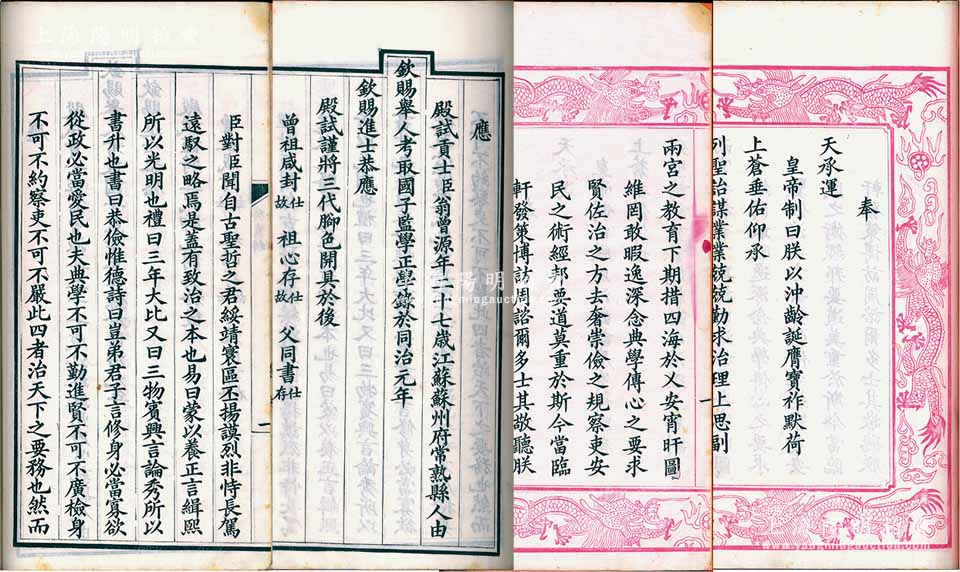 奉
天承運
皇帝制曰朕以沖齡誕膺寶祚默荷
上蒼垂佑仰承
列聖詒謀業業兢兢勤求治理上思副
兩宮之教育下期措四海於乂安宵旰圖
維罔敢暇逸深念典學傳心之要求
賢佐治之方去奢崇儉之規察吏安
民之術經邦要道莫重於斯今當臨
軒發策博訪周諮爾多士其敬聽朕
應
殿試貢士臣翁曾源年二十七歲江蘇蘇州府常熟縣人由
欽賜舉人考取國子監學正學錄於同治元年
欽賜進士恭應
殿試謹將三代腳色開具於後
曾祖咸封仕故 祖心存仕故 父同書仕存
臣對臣聞自古聖哲之君綏靖寰區丕揚謨烈非恃長駕
遠馭之略焉是蓋有致治之本也易曰蒙以養正言緝熙
所以光明也禮曰三年大比又曰三物賓興言論秀所以
書升也書曰恭儉惟德詩曰豈弟君子言修身必當寡欲
從政必當愛民也夫典學不可不勤進賢不可不廣檢身
不可不約察吏不可不嚴此四者治天下之要務也然而